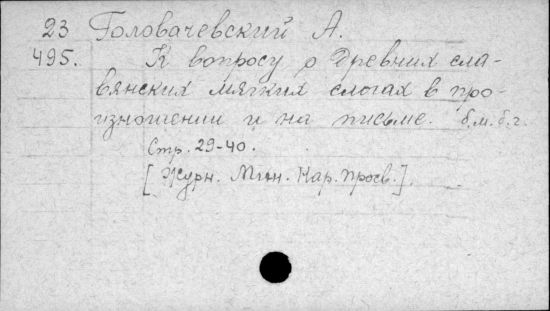 23 Головачевский А.
495. К вопросу о древних сла-
вянских мягких слогах в про-
изношении и на письме. б.м. б.г.
Стр. 29-40.
[Журн. Мин. Нар. Просв.].